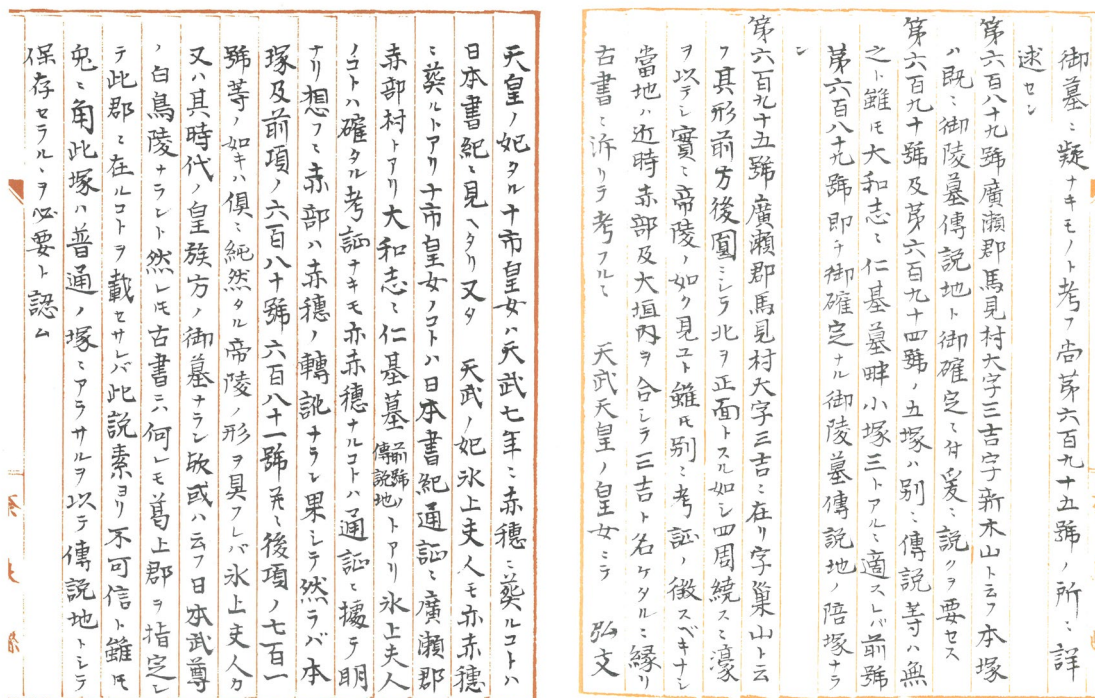 御墓ニ疑ナキモノト考フ尚第六百九十五號ノ所ニ詳
述セン
第六百八十九號廣瀬郡馬見村大字三吉字新木山ト云フ本塚
ハ既ニ御陵墓傳説地ト御確定ニ付爰ニ説クヲ要セス
第六百九十號及第六百九十四號ノ五塚ハ別ニ傳説等ハ無
之ト雖モ大和志ニ仁基墓畔小塚三トアルニ適スレバ前號
第六百八十九號即チ御確定ナル御陵墓傳説地ノ陪塚ナラ
ン
第六百九十五號廣瀬郡馬見村大字三吉ニ在リ字巣山ト云
フ其形前方後圓ニシテ北ヲ正面トスル如シ四周繞スニ濠
ヲ以テシ實ニ帝陵ノ如ク見ユト雖モ別ニ考証ノ徴スベキナシ
當地ハ近時赤部及大垣内ヲ合シテ三吉ト名ケタルニ縁リ
古書ニ泝リテ考フルニ 天武天皇ノ皇女ニテ 弘文
天皇ノ妃タル十市皇女ハ天武七年ニ赤穂ニ葬ルコトハ
日本書紀ニ見ヘタリ又タ 天武ノ妃氷上夫人モ亦赤穂
ニ葬ルトアリ十市皇女ノコトハ日本書紀通証ニ廣瀬郡
赤部村トアリ大和志ニ仁基墓前號ノ傳説地トアリ氷上夫人
ノコトハ確タル考証ナキモ亦赤穂ナルコトハ通証ニ據テ明
ナリ想フニ赤部ハ赤穂ノ轉訛ナラン果シテ然ラバ本
塚及前項ノ六百八十號六百八十一號并ニ後項ノ七百一
號等ノ如キハ倶ニ純然タル帝陵ノ形ヲ具フレバ氷上夫人カ
又ハ其時代ノ皇族方ノ御墓ナラン欤或ハ云フ日本武尊
ノ白鳥陵ナラント然レモ古書ニハ何レモ葛上郡ヲ指定シ
テ此郡ニ在ルコトヲ載セサレバ此説素ヨリ不可信ト雖モ
兎ニ角此塚ハ普通ノ塚ニアラサルヲ以テ傳説地トシテ
保存セラルヽヲ必要ト認ム